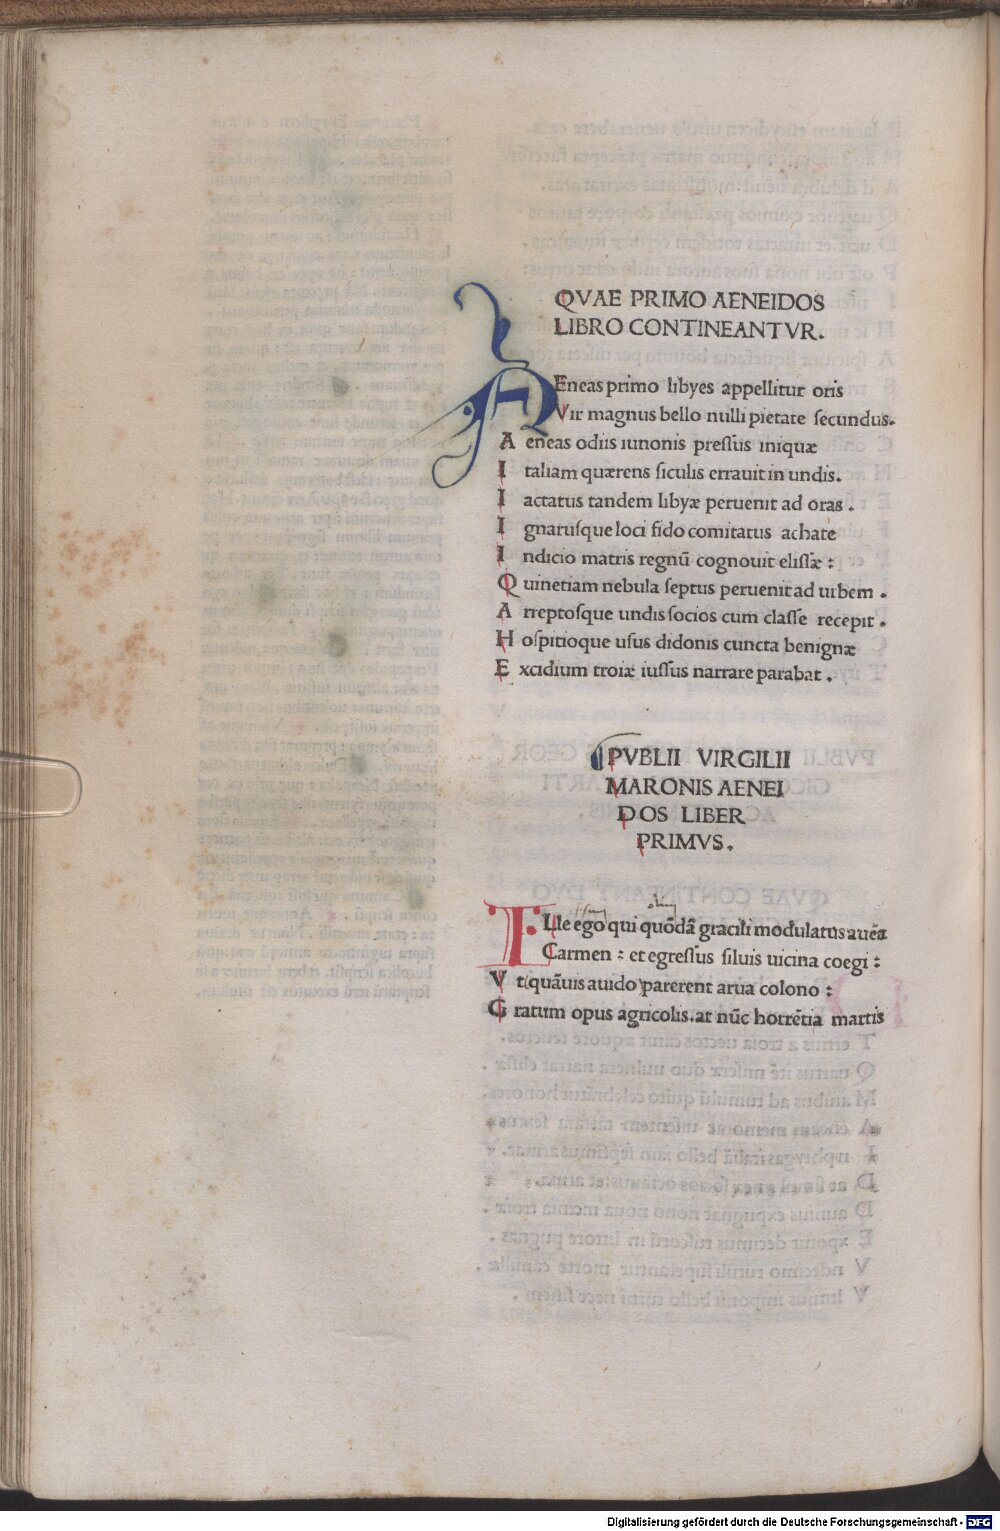 QVAE PRIMO AENEIDOS
LIBRO CONTINEANTVR.
AEneas primo libyes appellitur oris
Vir magnus bello nulli pietate ſecundus.
A eneas odiis iunonis preſſus iniquæ
I taliam quærens ſiculis errauit in undis.
I actatus tandem libyæ peruenit ad oras .
I gnaruſque loci fido comitatus achate
I ndicio matris regnū cognouit eliſſæ :
Q uinetiam nebula ſeptus peruenit ad urbem .
A rreptoſque undis ſocios cum claſſe recepit .
H oſpitioque uſus didonis cuncta benignæ
E xcidium troiæ iuſſus narrare parabat .
PVBLII VIRGILII
MARONIS AENEI
DOS LIBER
PRIMVS .
ILle ego qui quōdā gracili modulatus auēa
Carmen : et egreſſus ſiluis uicina coegi :
V t quāuis auido parerent arua colono :
G ratum opus agricolis. at nūc horrētia martis
Digitalisierung gefördert durch die Deutsche Forschungsgemeinschaft - DFG